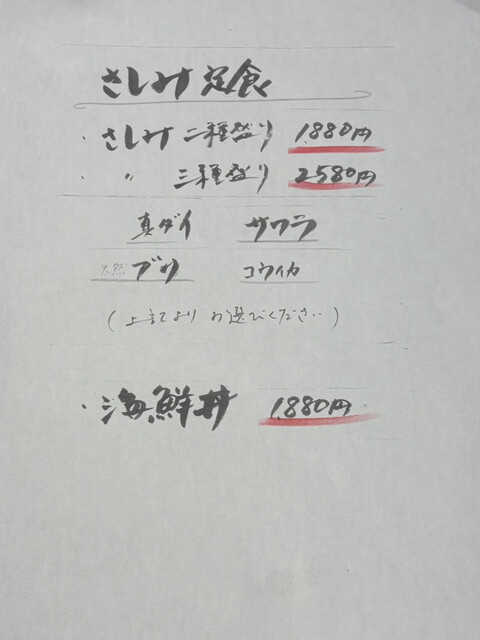 さしみ定食
・さしみ二種盛り 1,880円
・〃 三種盛り 2,580円
真ダイ サワラ
天然ブリ コウイカ
(上記よりお選びください)
・海鮮丼 1,880円